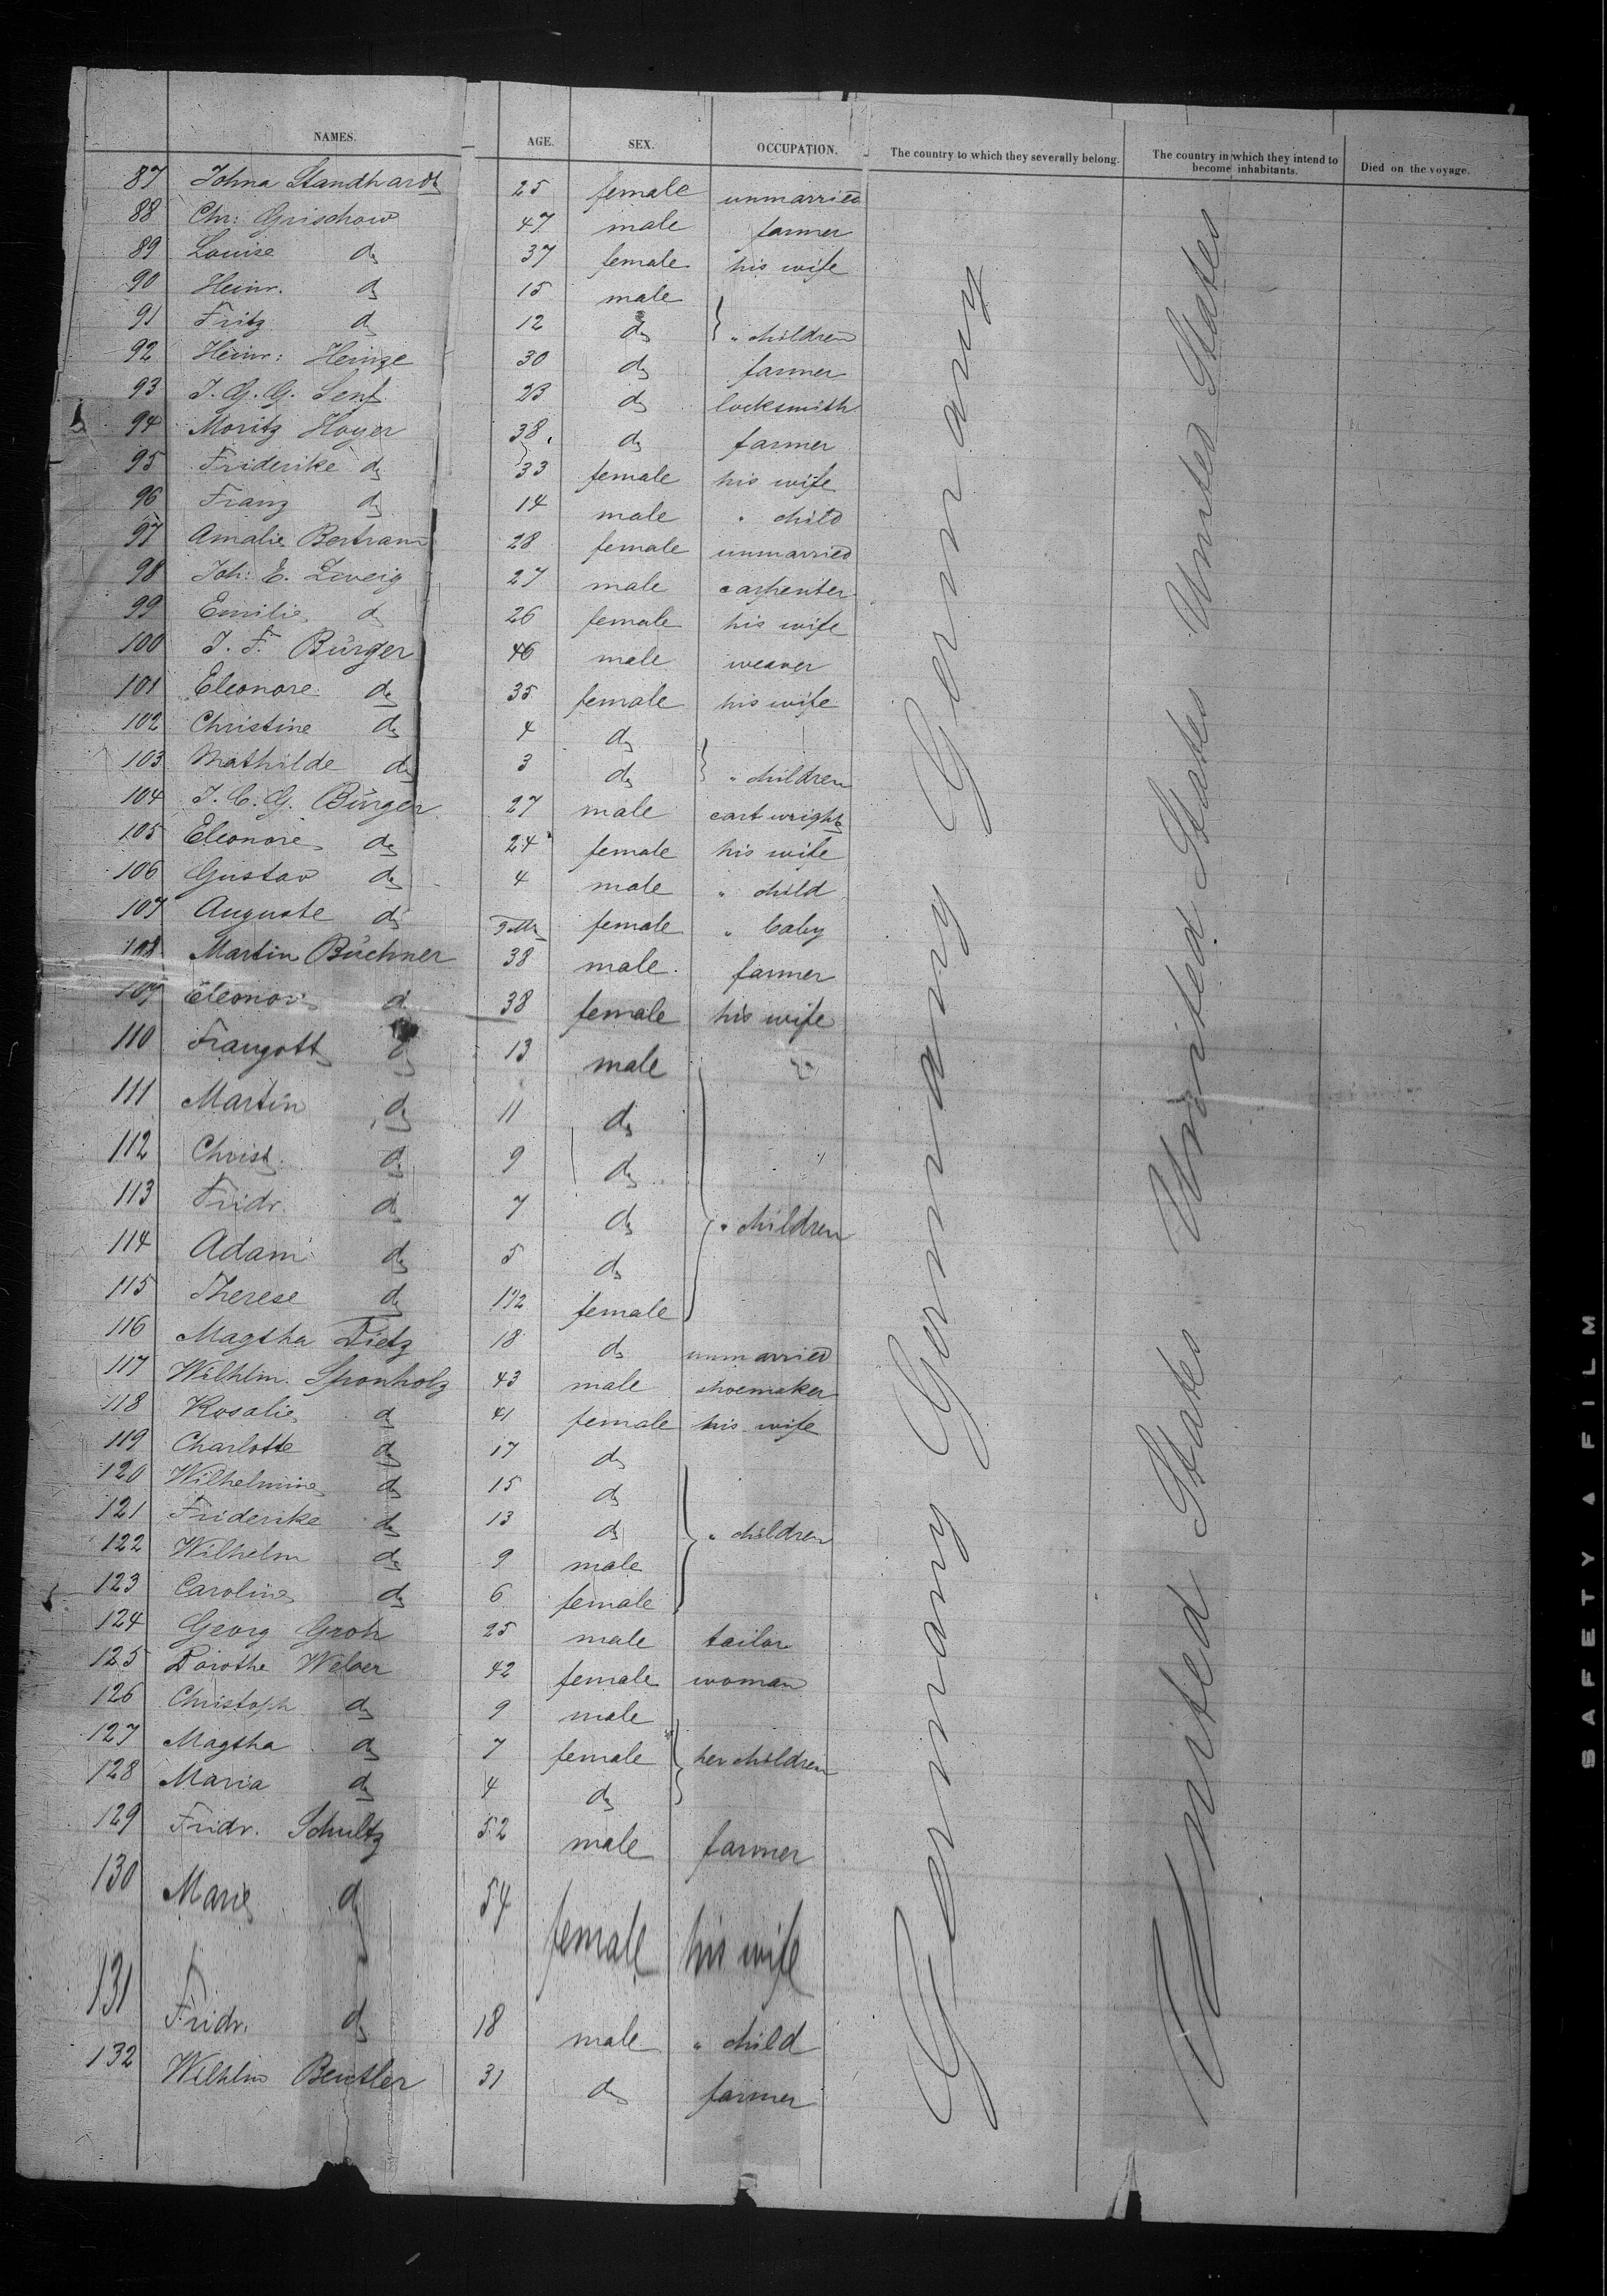 NAMES. AGE. SEX. OCCUPATION. The country to which they severally belong. The country in which they intend to become inhabitants. Died on the voyage.
87 Johna Standhardt 25 female unmarried
88 Chr: Grischow 47 male farmer
89 Louise do 37 female his wife
90 Heinr. do 15 male
91 Fritz do 12 do " children
92 Heinr: Heinze 30 do farmer
93 J. G. G. Senf 23 do locksmith
94 Moritz Hoyer 38 do farmer
95 Friderike do 33 female his wife
96 Franz do 14 male " child
97 Amalie Bertram 28 female unmarried
98 Joh: E. Zweig 27 male carpenter
99 Emilie do 26 female his wife
100 J. F. Bürger 46 male weaver
101 Eleonore do 35 female his wife
102 Christine do 4 do
103 Mathilde do 3 do " children
104 J. C. G. Bürger 27 male cart wright
105 Eleonore do 24 female his wife
106 Gustav do 4 male " child
107 Auguste do female " baby
108 Martin Büchner 38 male farmer
109 Eleonore do 38 female his wife
110 Traugott do 13 male
111 Martin do 11 do
112 Christ. do 9 do
113 Fridr. do 7 do " children
114 Adam do 5 do
115 Therese do 1 1/2 female
116 Magtha Dietz 18 do unmarried
117 Wilhlm. Sponholz 43 male shoemaker
118 Rosalie do 41 female his wife
119 Charlotte do 17 do
120 Wilhelmine do 15 do
121 Friderike do 13 do " children
122 Wilhelm do 9 male
123 Caroline do 6 female
124 Georg Groh 25 male tailor
125 Dorothe Weber 42 female woman
126 Christoph do 9 male
127 Magtha do 7 female her children
128 Maria do 4 do
129 Fridr. Schultz 52 male farmer
130 Marie do 54 female his wife
131 Fridr. do 18 male " child
132 Wilhlm Beutler 31 do farmer
Germany Germany Germany Germany
United States United States United States
SAFETY A FILM